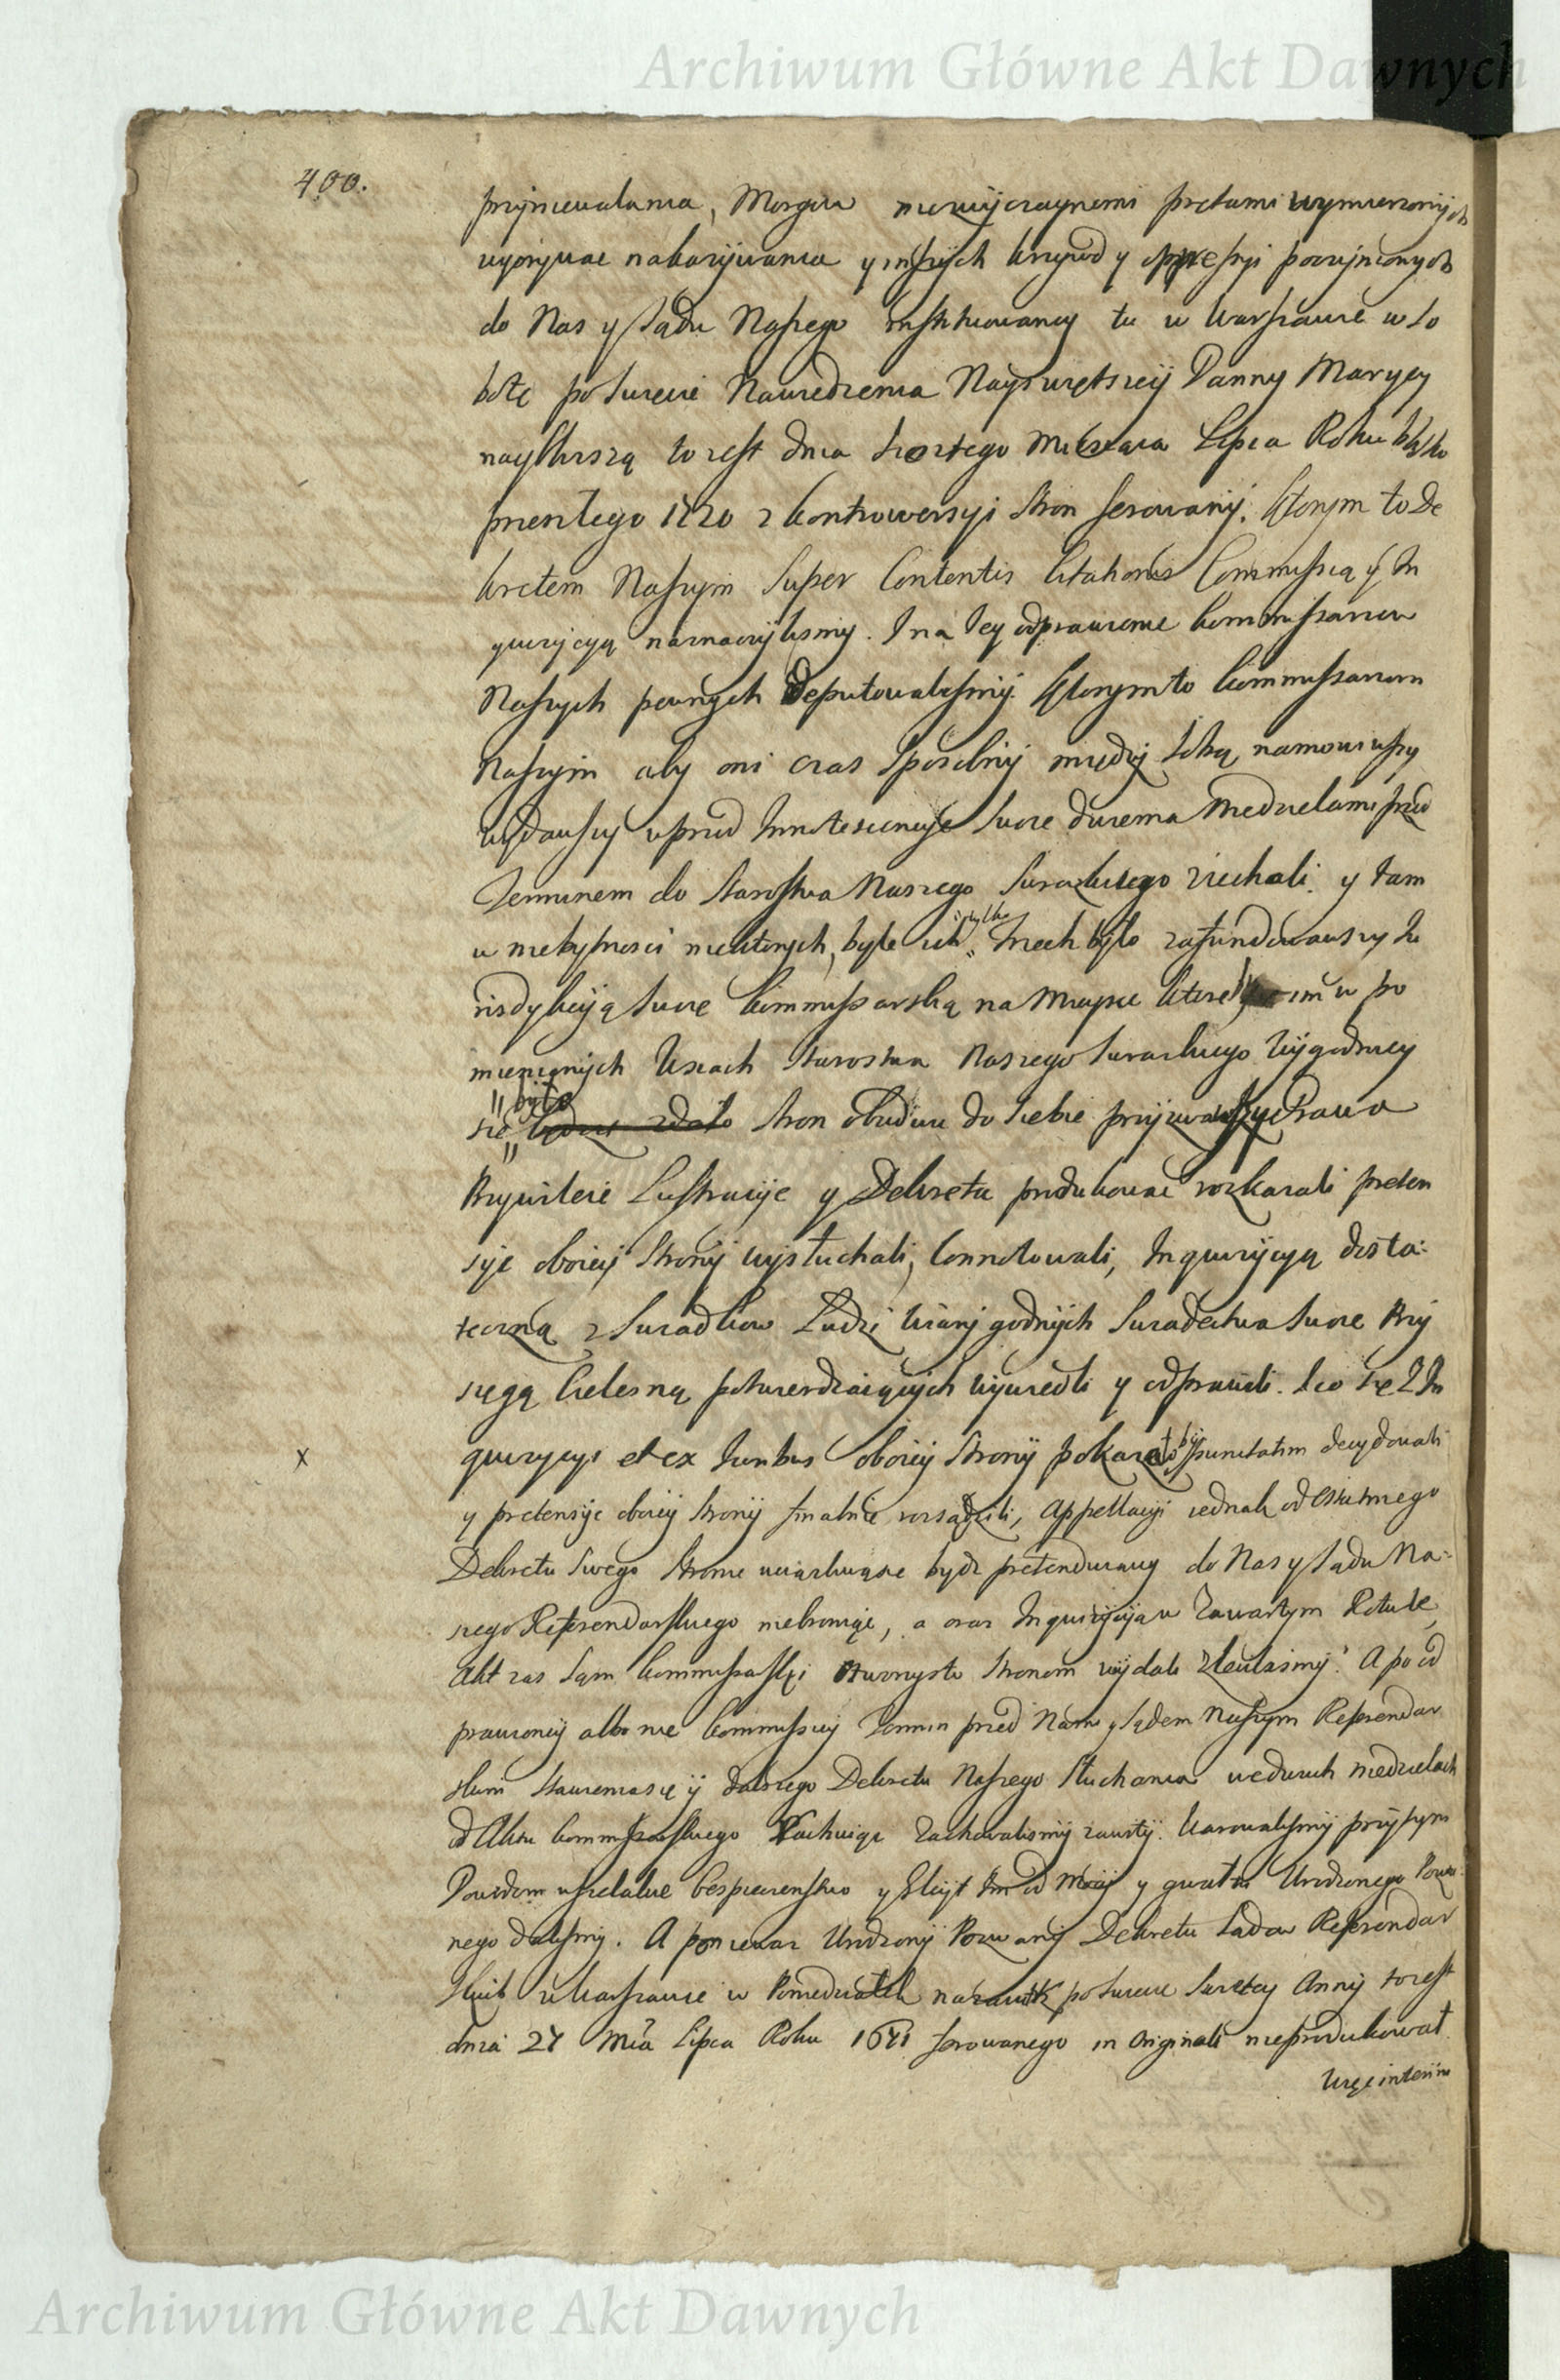 Archiwum Główne Akt Dawnych
400.
przyniewalania, Morgow niezwyczaynemi prętami wymierzonych
wyorywac nakazywania y inszych krzywd y oppressyi poczynionych
do Nas y Sądu Naszego instituowaney tu w Warszawie w So
botę po Swięcie Nawiedzenia Nayswiętszey Panny Maryey
naybliszą to iest dnia szostego Miesiąca Lipca Roku blisko
przeszłego 1720 z kontrowersyi stron ferowany. Ktorym to De
kretem Naszym Super Contentis Citationis Commissią y In
quizycyą naznaczylismy. I na Jey odprawienie kommissarzow
Naszych pewnych Deputowalismy. Ktorymto kommissarzom
Naszym aby oni czas sposobny między sobą namowiwszy
wydawszy wprzod Innotescencye swoie dwiema Niedzielami przed
Terminem do Starostwa Naszego Surazkiego ziechali. y tam
w niebytnosci niektorych, byle ich tylko trzech było zafundowawszy Ju
risdykcyą swoię kommissarską na Mieyscu ktore im w po
mienionych Wsiach Starostwa Naszego Surazkiego wygodniey
było
się będzie zdało stron obudwu do siebie przyzwawszy Prawa
Przywileie Lustracye y Dekreta produkować rozkazali preten
sye oboiey strony wysłuchali, connotowali, Inquizycyą dosta-
teczną z Swiadkow Ludzi wiary godnych Swiadectwa swoie Przy
sięgą cielesną potwierdzaiących wywiedli y odprawili. I co się z In
x
quizycyi et ex Juribus oboiey strony pokazało by punctatim decydowali
y pretensye oboiey strony finalnie rozsądzili, Appellacyi iednak od Ostatniego
Dekretu swego stronie uciązliwosc bydz pretenduiącey do Nas y Sądu Na-
szego Referendarskiego niebroniąc, a oraz Inquizycyą w zawartym Rotule,
Akt zas sam kommissarski otworzysto stronom wydali zlecilismy. A po od
prawioney albo nie kommissiey Termin przed Nami y Sądem Naszym Referendar
skim stawieniasię y dalszego Dekretu Naszego słuchania wedwuch niedzielach
od Aktu kommissarskiego Rachuiąc zachowalismy zawity. Warowalismy przytym
Powodom wszelakie bespieczenstwo y Gleyt Im od Mocy y gwałtu Urodzonego Pozwa-
nego dalismy. A poniewaz Urodzony Pozwany Dekretu Sadow Referendar
skich w Warszawie w Poniedziałek nazaiutrz po Swięcie Swiętey Anny to iest
dnia 27 Mca Lipca Roku 1671 ferowanego in Originali nieprodukował
Więc interim
Archiwum Główne Akt Dawnych